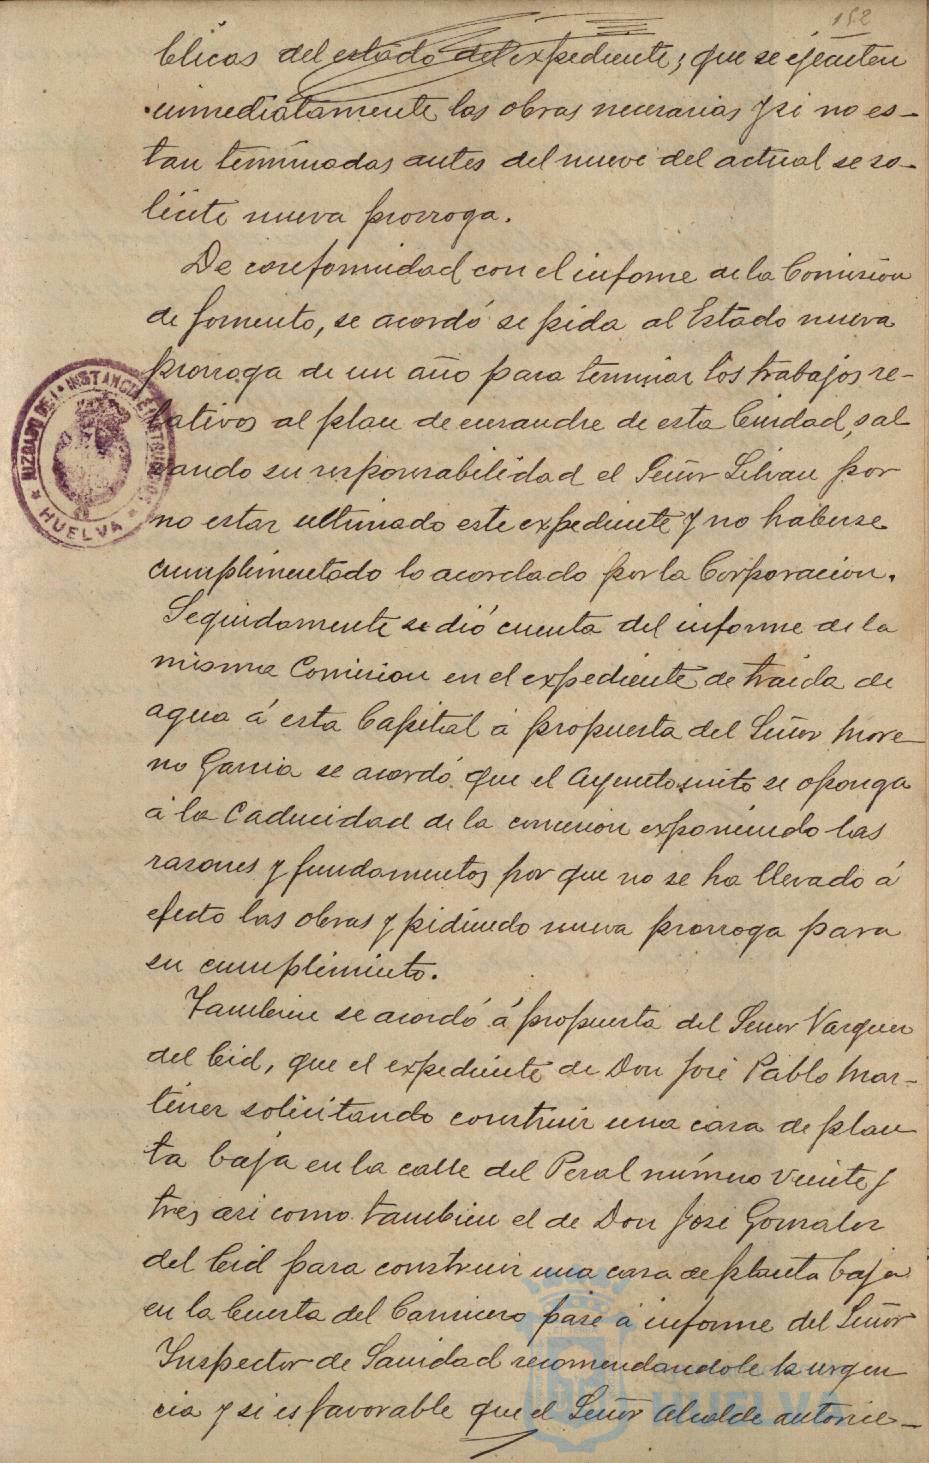 152
blicas del estado del expediente; que se ejecuten
inmediatamente las obras necesarias y si no es-
tan terminadas antes del nueve del actual se so-
licite nueva prorroga.
De conformidad con el informe de la Comision
de fomento, se acordó se pida al Estado nueva
prorroga de un año para terminar los trabajos re-
lativos al plan de ensanche de esta Ciudad, sal
vando su responsabilidad el Señor Silvan por
no estar ultimado este expediente y no haberse
cumplimentado lo acordado por la Corporacion.
Seguidamente se dió cuenta del informe de la
misma Comision en el expediente de traida de
agua á esta Capital á propuesta del Señor More-
no Garcia se acordó que el Ayuntomito se oponga
á la Caducidad de la concesion exponiendo las
razones y fundamentos por que no se ha llevado á
efecto las obras y pidiendo nueva prorroga para
su cumplimiento.
Tambien se acordó á propuesta del Señor Vazquez
del Cid, que el expediente de Don José Pablo Mar-
tinez solicitando construir una casa de plan
ta baja en la calle del Peral número veinte y
tres asi como tambien el de Don José Gonzalez
del Cid para construir una casa de planta baja
en la Cuesta del Carnicero pase á informe del Señor
Inspector de Sanidad recomendandole la urgen
cia y si es favorable que el Señor Alcalde autorice-
JUZGADO DE 1ª INSTANCIA E INSTRUCCION
HUELVA
HUELVA